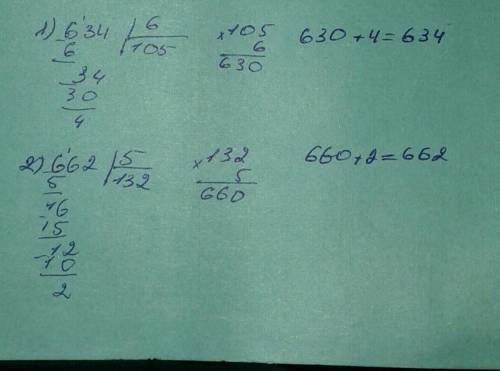 1) 634 | 6 × 105 630 + 4 = 634
6 105 6
34 630
30
4
2) 662 | 5 × 132 660 + 2 = 662
5 132 5
16 660
15
12
10
2